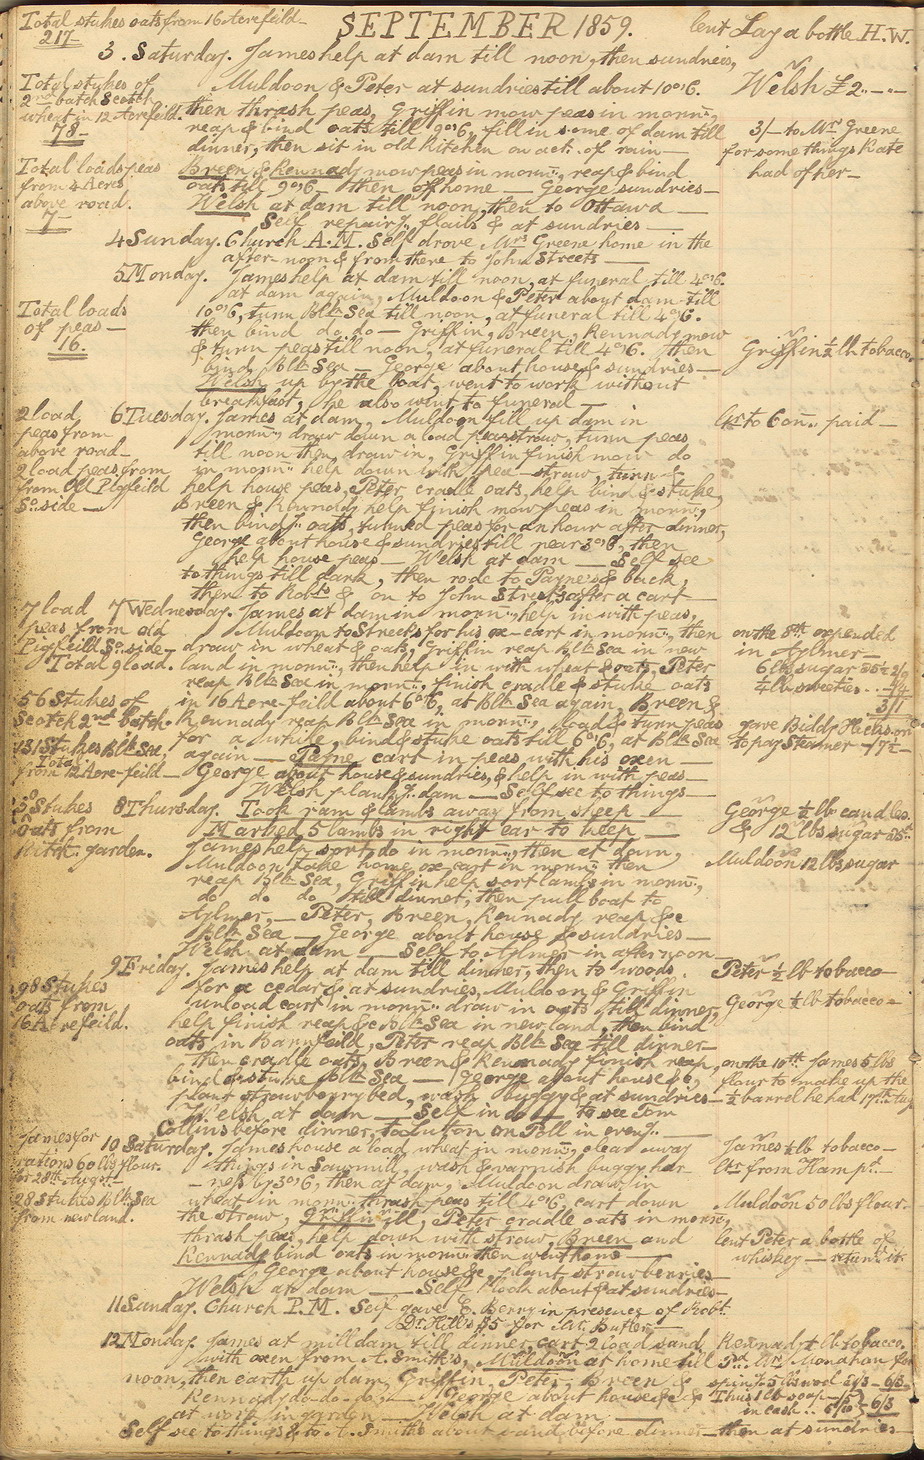 Total stukes oats from 16 Acre feild-
217-
SEPTEMBER 1859.
lent Lay a bottle H.W.
3. Saturday. James help at dam till noon, then sundries,
Total stukes of
2nd batch Scotch
wheat in 12 Acre feild.
78-
Muldoon & Peter at sundries till about 10 o'6.
then thrash peas, Griffin mow peas in morng.,
reap & bind oats till 9 o'6, fill in some of dam till
dinner, then sit in old Kitchen on act. of rain-
Welsh £2..-..-
3/- to Mrs Greene
for some things Kate
had of her-
Total loads peas
from 4 Acres
above road.
7-
Breen & Kennady mow peas in morng., reap & bind
oats till 9 o'6- then off home - George sundries-
Welsh at dam till noon, then to Ottawa -
Self repairg. flails & at sundries -
4 Sunday. Church A.M. Self drove Mrs Greene home in the
after-noon & from there to John Streets -
5 Monday. James help at dam till noon, at funeral till 4 o'6.
at dam again, Muldoon & Peter about dam till
10 o'6, turn Blk Sea till noon, at funeral till 4 o'6.
then bind do do - Griffin, Breen, Kennady mow
& turn peas till noon, at funeral till 4 o'6. then
bind Blk Sea - George about house & sundries-
Welsh up by the boat, went to work without
breakfast, he also went to funeral -
Total loads
of peas-
16.
Griffin ½ lb tobacco.
6 Tuesday. James at dam, Muldoon fill up dam in
morng., draw down a load peas straw, turn peas
till noon then draw in, Griffin finish mow do
in morng. help down with pea-straw, turn &
help house peas, Peter cradle oats, help bind & stuke,
Breen & Kennady help finish mow peas in morng.,
then bindg. oats, turned peas for an hour after dinner,
George about house & sundries till near 3 o'6, then
help house peas - Welsh at dam - Self see
to things till dark, then rode to Paynes & back,
then to Robts & on to John Streets after a cart -
2 load,
peas from
above road-
2 load peas from
from Old Pigfeild
So. side -
paid -
7 Wednesday. James at dam in morng., help in with peas,
Muldoon to Streets for his ox-cart in morng., then
draw in wheat & oats, Griffin reap Blk Sea in new
land in morng., then help in with wheat & oats, Peter
reap Blk Sea in morng., finish cradle & stuke oats
in 16 Acre-feild about 6 o'6, at Blk Sea again, Breen &
Kennady reap Blk Sea in morng., load & turn peas
for a while, bind & stuke oats till 6 o'6, at Blk Sea
again - Payne cart in peas with his oxen -
George about house & sundries, & help in with peas-
Welsh plankg. dam - Self see to things -
7 load
peas from old
Pigfeild So. side-
Total 9 load.
56 Stukes of
Scotch 2nd batch.
131 Stukes Blk Sea,
Total
from 12 Acre-feild-
on the 8th expended
in Aylmer-
6 lb sugar
¼ lb sweeties..
3/1
gave Biddy
to pay Steamer -
8 Thursday. Took ram & lambs away from sheep -
Marked 5 lambs in right ear to keep -
James help sort do in morng., then at dam,
Muldoon take home ox-cart in morng. then
reap Blk Sea, Griffin help sort lambs in morng.,
do do do till dinner, then pull boat to
Aylmer, - Peter, Breen, Kennady reap &c
Blk Sea - George about house & sundries -
Welsh at dam - Self to Aylmer in afternoon -
Stukes
oats from
Kitch. garden.
George ½ lb candles.
& 12 lbs sugar
Muldoon 12 lbs sugar
9 Friday. James help at dam till dinner, then to woods
for a cedar & at sundries, Muldoon & Griffin
unload cart in morng. draw in oats till dinner,
help finish reap &c Blk Sea in new land, then bind
oats in Barnfeild, Peter reap Blk Sea till dinner
then cradle oats, Breen & Kennady finish reap,
bind & stuke Blk Sea - George about house &c,
plant strawberry bed, wash buggy & at sundries-
Welsh at dam - Self in to see Tom
Collins before dinner, to Lutton on Poll in eveng. -
98 Stukes
oats from
16 Acre feild.
Peter ½ lb tobacco-
George ½ lb tobacco-
on the 10th James 5 lbs
flour to make up the
½ barrel he had 17th
10 Saturday. James house a load wheat in morng., clear away
things in Sawmill, wash & varnish buggy har-
-ness by 3 o'6, then at dam, Muldoon draw in
wheat in morng. thrash peas till 4 o'6, cart down
the straw, Griffin ill, Peter cradle oats in morng.,
thrash peas, help down with straw, Breen and
Kennady bind oats in morng. then went home -
George about house &c, plant strawberries-
Welsh at dam - Self about & at sundries-
James for
rations 60 lbs flour.
for 28th August-
28 Stukes Blk Sea
from new land.
James ½ lb tobacco-
Muldoon 50 lbs flour.
lent Peter a bottle of
whiskey - it.
11 Sunday. Church P.M. Self gave E. Berry in presence of Robt.
$5 for Mr. Butler -
12 Monday. James at mill dam till dinner, cart 2 load sand
with oxen from A. Smith's, Muldoon at home till
noon, then earth up dam, Griffin, Peter, Breen &
Kennady do-do-do, - George about house &c &
at work in garden - Welsh at dam -
Self see to things & to A. Smiths about sand before dinner - then at sundries-
Kennady ½ lb tobacco.
Pd. Mrs Monahan for
sping. 5 lbs wool
Thus 1 lb soap-
in cash..